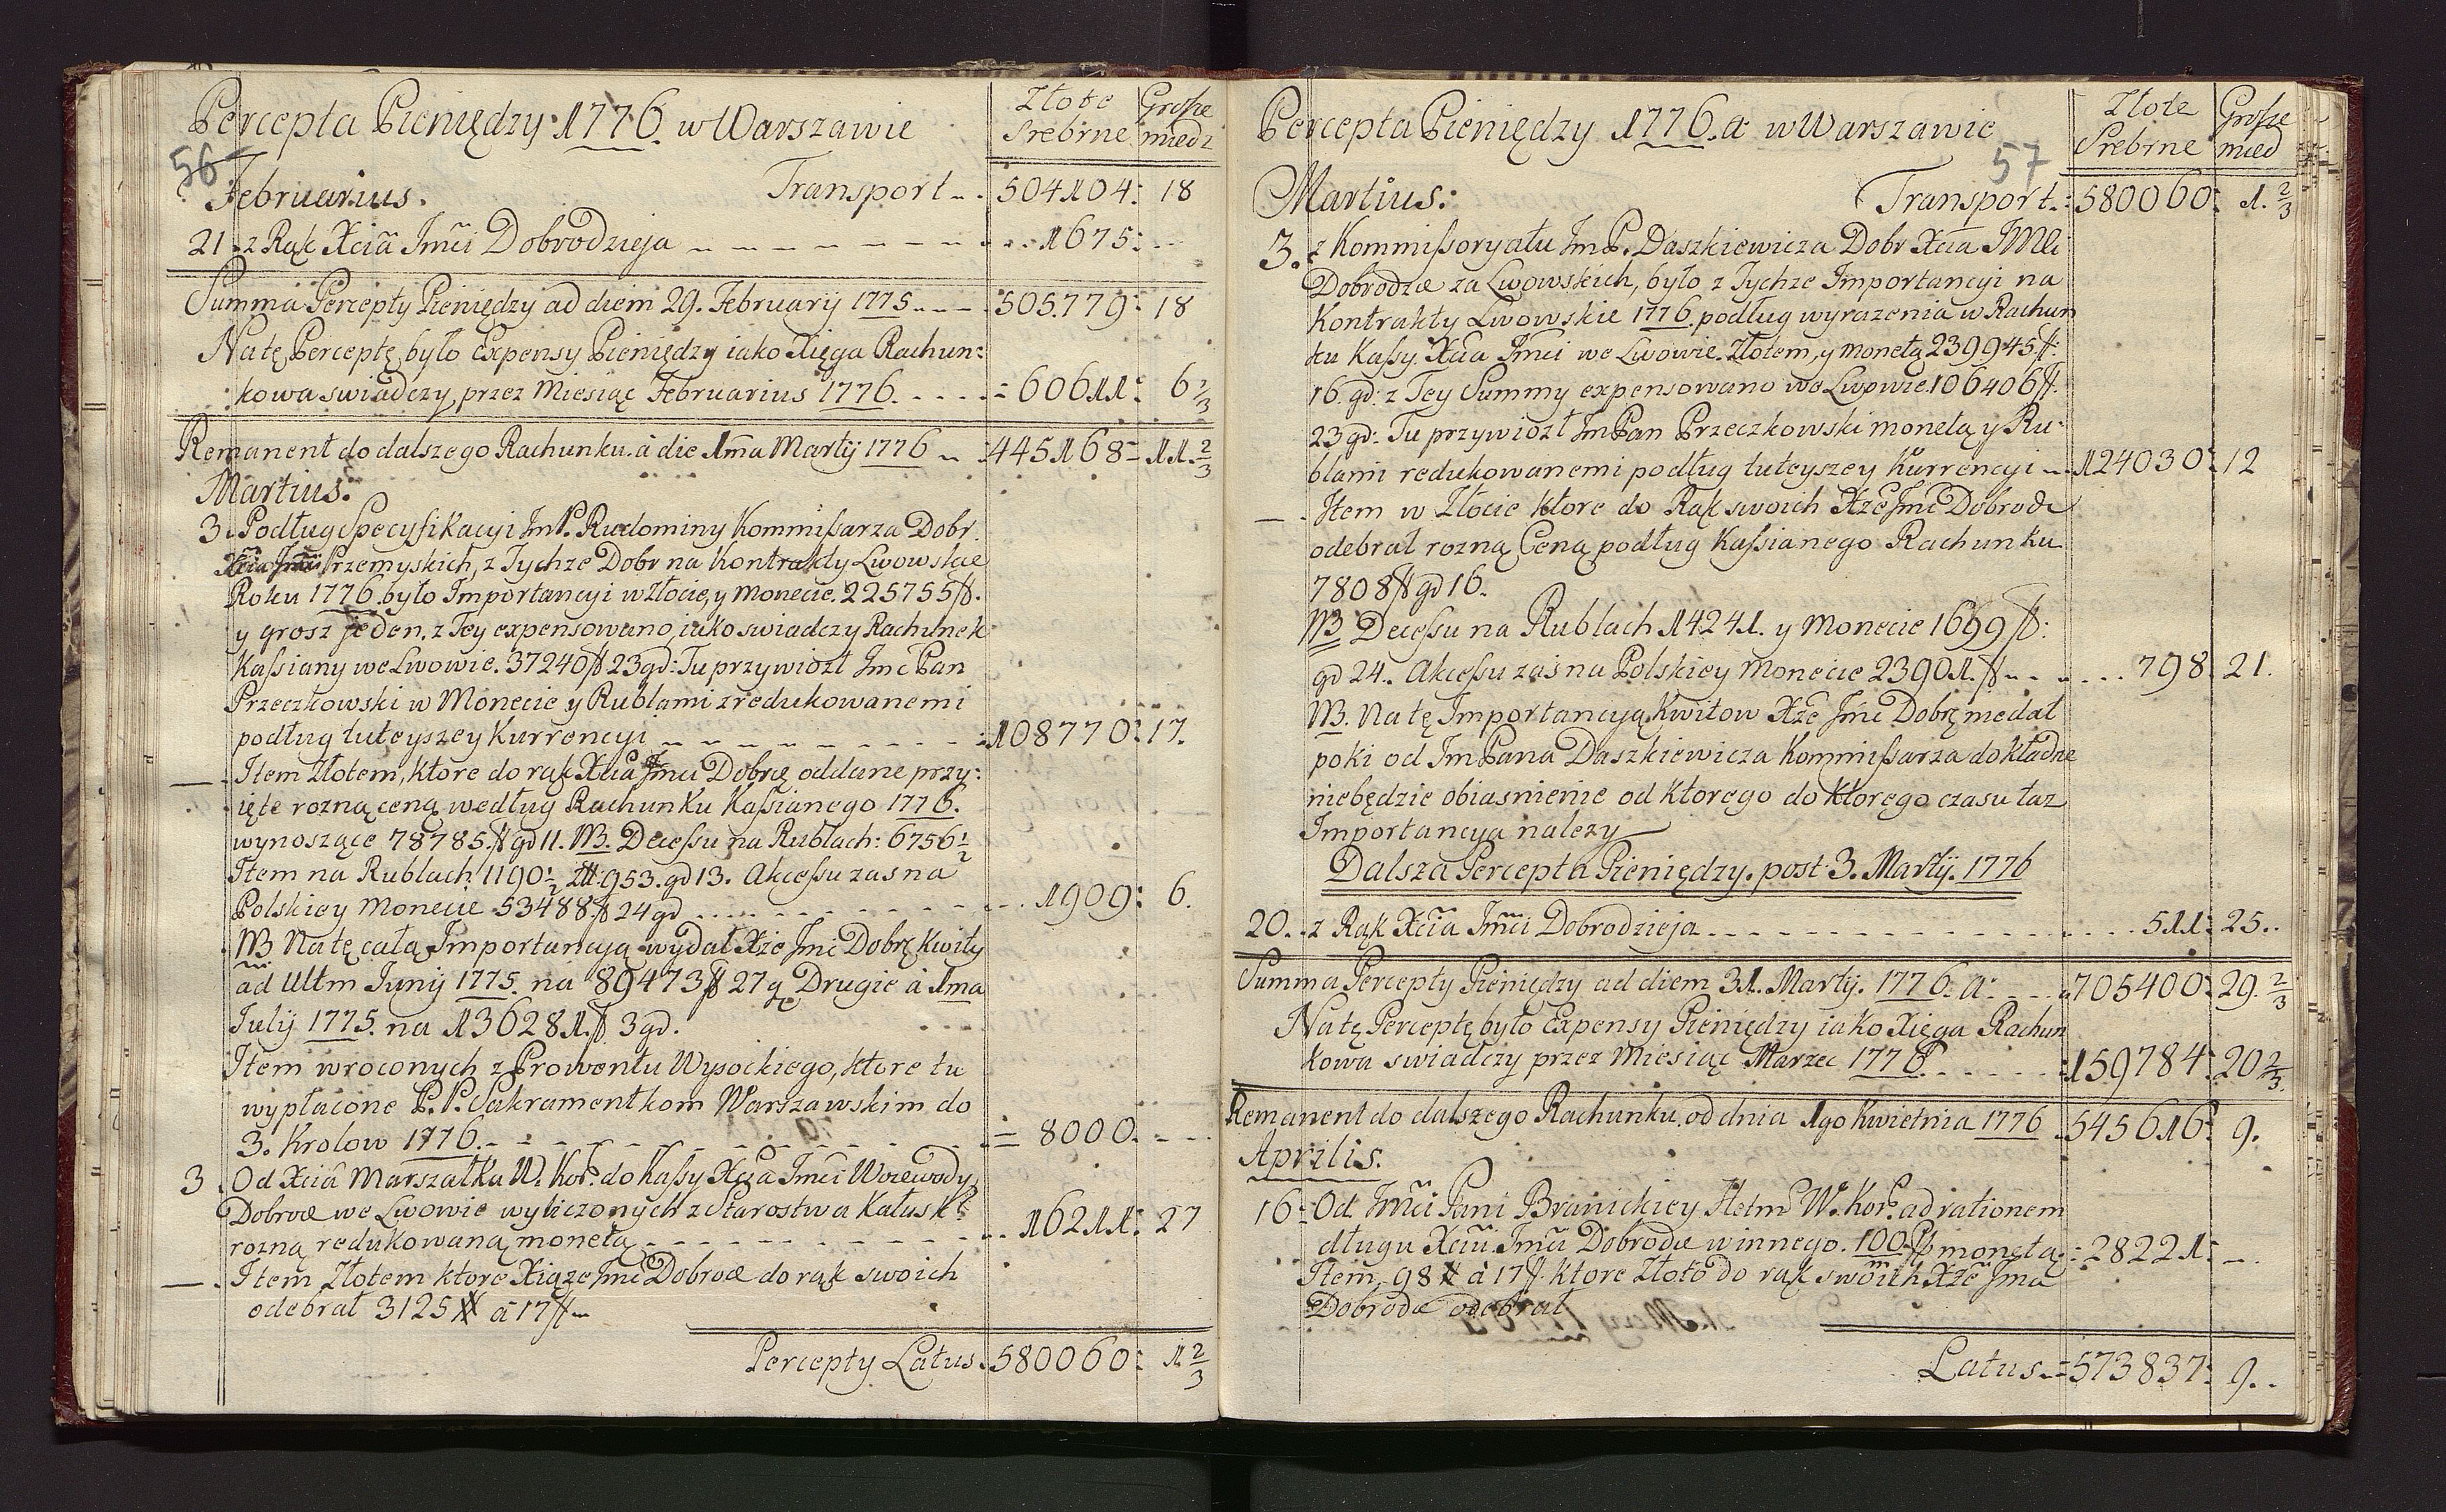 Percepta Pieniędzy 1776. w Warszawie
Złote Srebrne
Grosze miedz
56
Februarius.
Transport 504104: 18
21 z Rąk Xcia Jmci Dobrodzieja 1675:
Summa Percepty Pieniędzy ad diem 29. February 1775 505.779: 18
Na tę Perceptę było Expensy Pieniędzy iako Xięga Rachun:
kowa swiadczy przez Miesiąc Februarius 1776. 60611: 6 1/3
Remanent do dalszego Rachunku. à die 1ma Martij 1776 445168: 11. 2/3
Martius.
3. Podług Specyfikacyi JmP. Rudominy Kommissarza Dobr
Xcia Jmci Przemyskich, z Tychze Dobr na Kontrakty Lwowskie
Roku 1776. było Importancyi w Złocie, y Monecie. 225755 fl.
y grosz jeden. z Tey expensowano, iako swiadczy Rachunek
Kassiany we Lwowie. 37240 fl 23 gd: Tu przywiozł Jmc Pan
Przeczkowski w Monecie y Rublami zredukowanemi
podług tuteyszey Kurrencyi 108770: 17.
Item Złotem, ktore do rąk Xcia Jmci Dobrze oddane przy:
ięte rozną ceną według Rachunku Kassianego 1776.
wynoszące 78785. fl gd 11. NB. Decessu na Rublach: 6756 1/2
Item na Rublach 1190 1/2 zł. 953. gd 13. Akcessu zas na
Polskiey Monecie 53488. fl 24 gd 1909: 6.
NB Na tę całą Importancyą wydał Xże Jmc Dobrę Kwity
ad Ultm Junij 1775. na 89473 fl 27 g Drugie à 1ma
July 1775. na 136281. fl 3 gd.
Item wroconych z Prowentu Wysockiego, ktore tu
wypłacone P.P. Sakramentkom Warszawskim do
3. Krolow 1776. 8000.
3. Od Xcia Marszałka W. Kor. do Kassy Xcia Jmci Woiewody
Dobrod we Lwowie wyliczonych z Starostwa Kałusk
rozną redukowaną monetą 16211: 27
Item Złotem ktore Xiąze Jmc Dobrod do rąk swoich
odebrał 3125 # à 17 fl
Percepty Latus. 580060: 1 2/3
Percepta Pieniędzy 1776. a w Warszawie
Złote Srebrne
Grosze mied
57
Martius:
Transport. 580060: 1. 2/3
3. z Kommissoryatu JmP. Daszkiewicza Dobr Xcia JMci
Dobrodz za Lwowskich, było z Tychze Importancyi na
Kontrakty Lwowskie 1776. podług wyrazenia w Rachun
ku Kassy Xcia Jmci we Lwowie. Złotem, y monetą 239945 fl:
16. gd: z Tey Summy expensowano we Lwowie. 106406 fl.
23 gd: Tu przywiozł Jm Pan Przeczkowski monetą y Ru:
blami redukowanemi podług tuteyszey Kurrencyi 124030: 12
Item w Złocie ktore do Rąk swoich Xże Jmc Dobrodz
odebrał rozną Ceną podług Kassianego Rachunku
7808 fl gd 16.
NB Decessu na Rublach 14241. y Monecie 1699 fl:
gd 24. Akcessu zas na Polskiey Monecie 23901. fl 798. 21.
NB. Na tę Importancyą Kwitow Xże Jmc Dobrę niedał
poki od Jm Pana Daszkiewicza Kommissarza dokładne
niebędzie obiasnienie od ktorego do ktorego czasu taz
Importancya nalezy
Dalsza Percepta Pieniędzy. post 3. Martij. 1776
20. z Rąk Xcia Jmci Dobrodzieja 511: 25..
Summa Percepty Pieniędzy ad diem 31. Martij. 1776. a: 705400: 29. 2/3
Na tę Perceptę było Expensy Pieniędzy iako Xięga Rachun
kowa swiadczy przez Miesiąc Marzec 1776. 159784: 20 2/3.
Remanent do dalszego Rachunku od dnia 1go Kwietnia 1776 545616: 9.
Aprilis.
16. Od Jmci Pani Branickiey Hetm W. Kor. ad rationem
długu Xcia Jmci Dobrodz winnego. 100 fl monetą 28221:
Item 98 # à 17 fl. ktore Złoto do rąk swoich Xże Jma
Dobrodz odebrał
Latus 573837: 9..